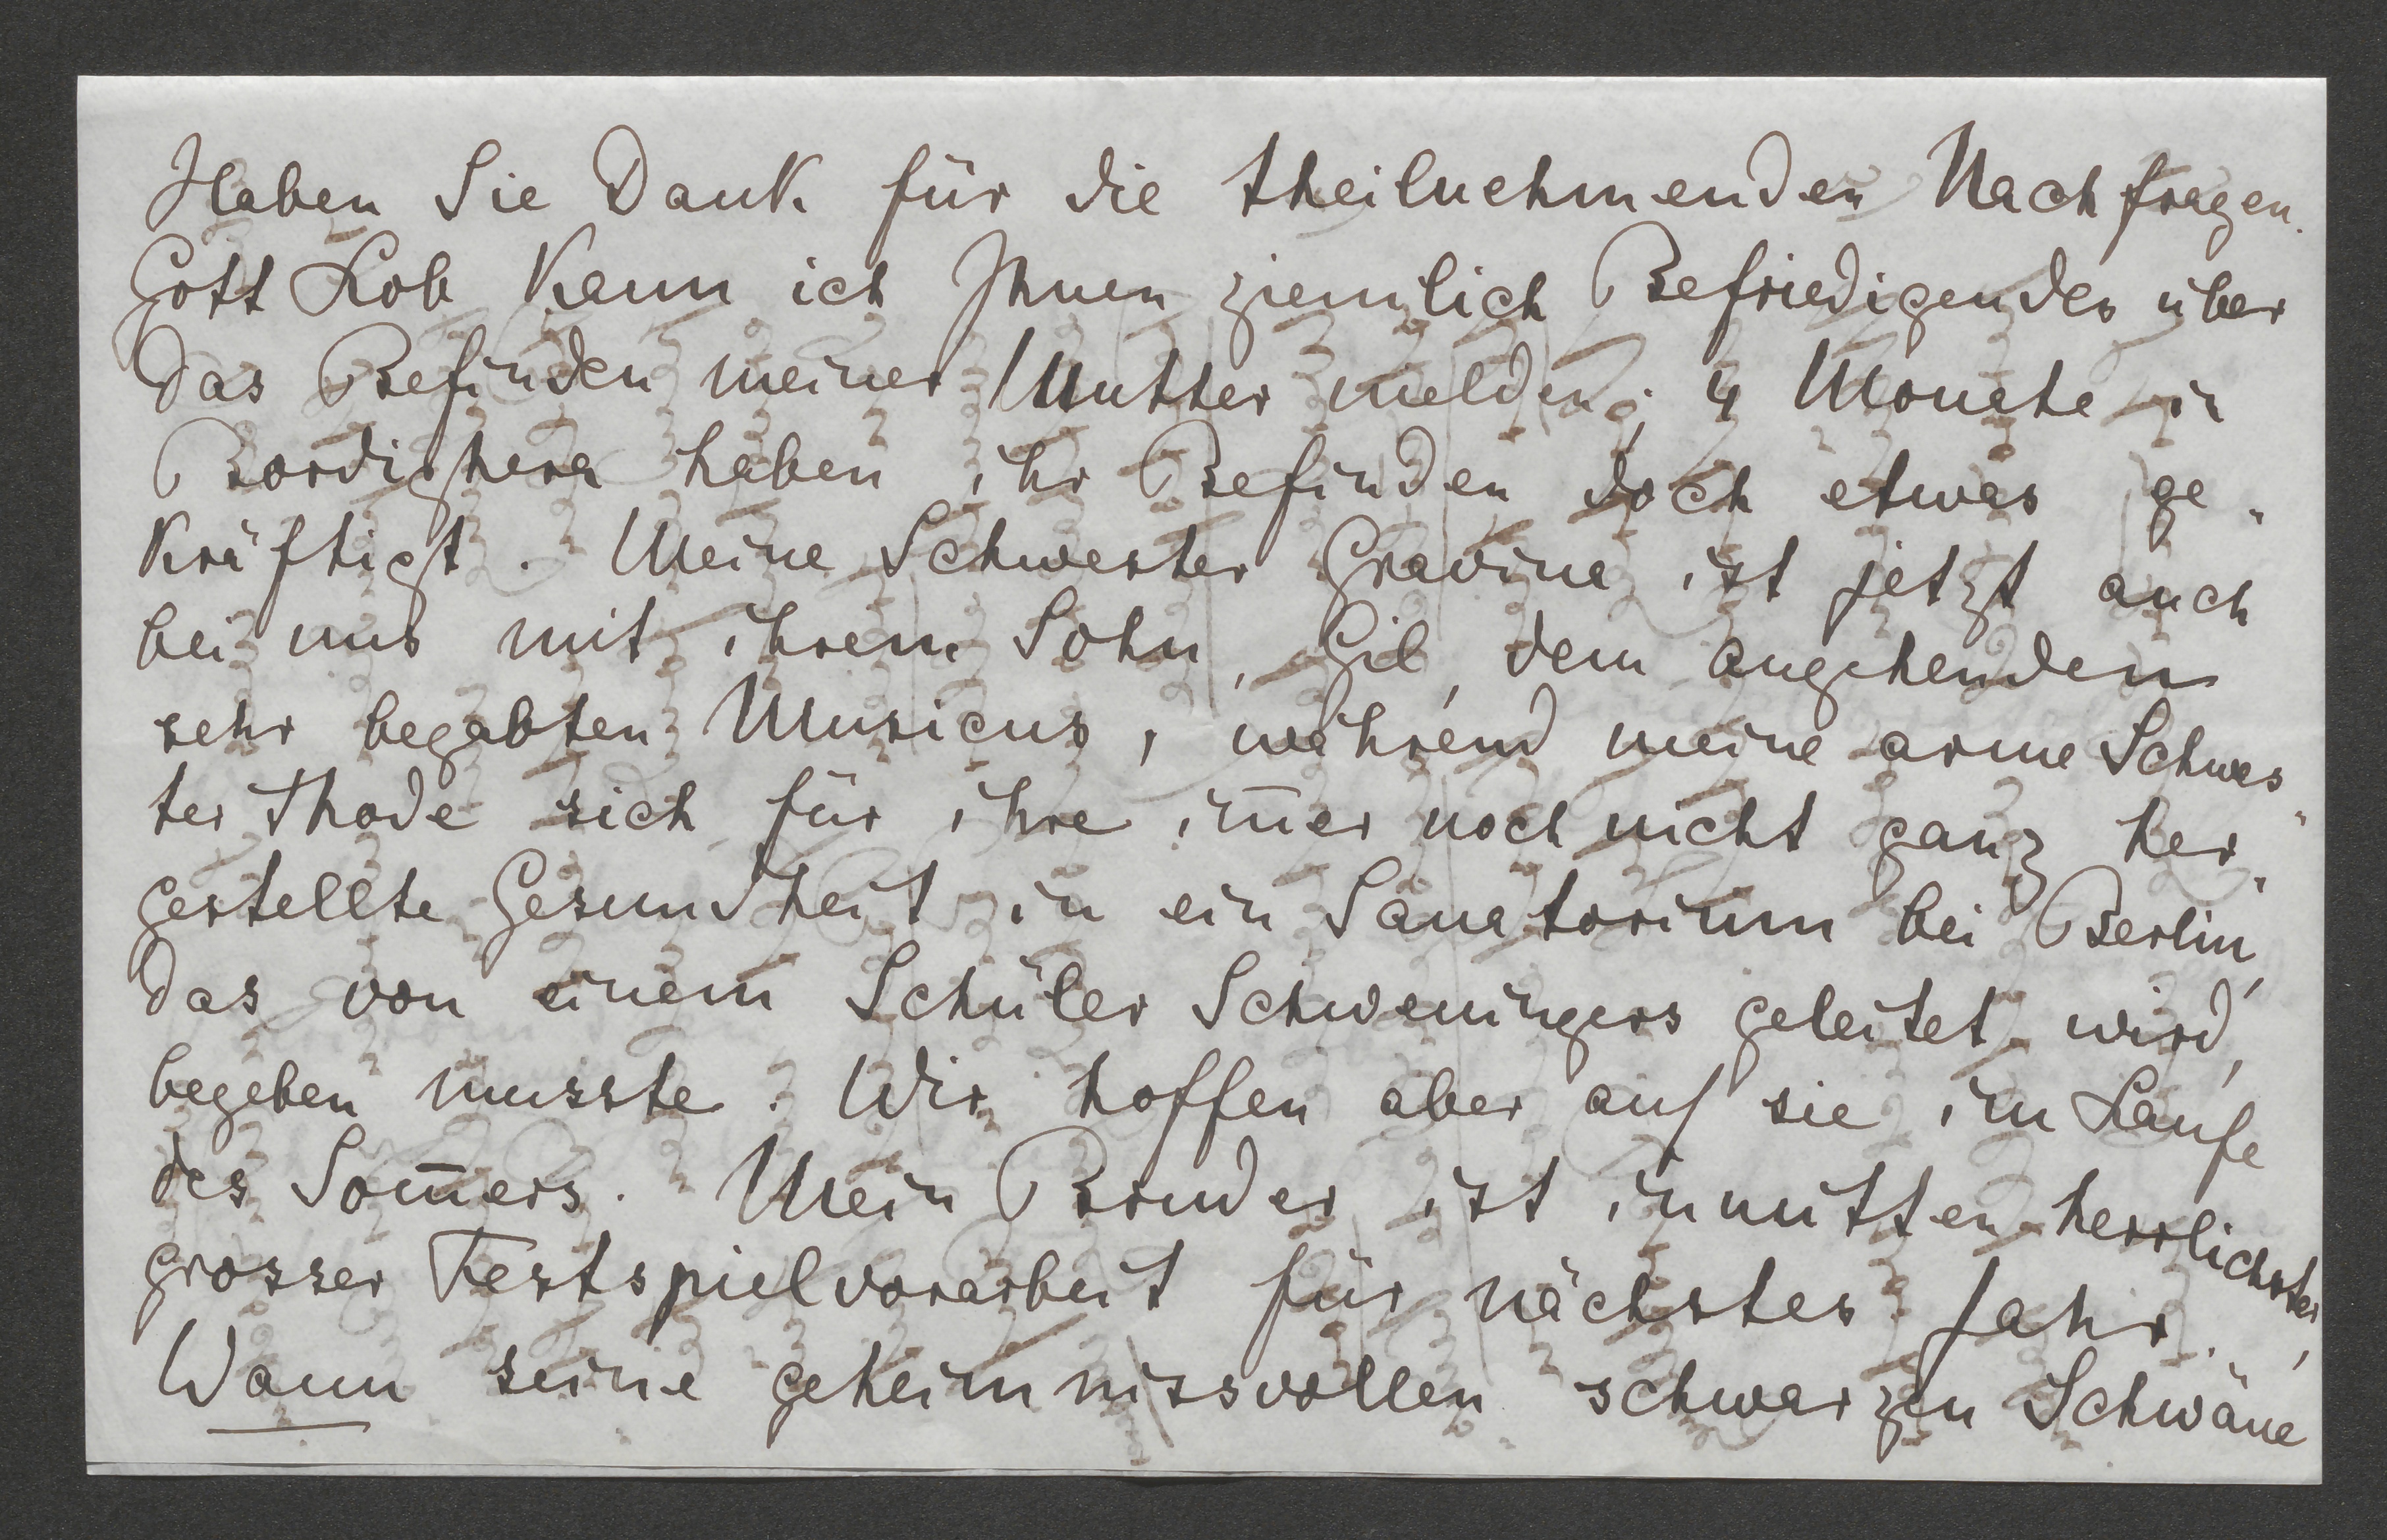 Haben Sie Dank für die theilnehmenden Nachfragen.
Gott Lob kann ich Ihnen ziemlich Befriedigendes über
das Befinden meiner Mutter melden; 4 Monate in
Bordighera haben ihr Befinden doch etwas ge-
kräftigt. Meine Schwester Gravina ist jetzt auch
bei uns mit ihrem Sohn, Gil, dem angehenden
sehr begabten Musicus, während meine arme Schwes-
ter Thode sich für ihre im̅er noch nicht ganz her-
gestellte Gesundheit in ein Sanatorium bei Berlin,
das von einem Schüler Schweningers geleitet wird,
begeben musste. Wir hoffen aber auf sie im Laufe
des Som̅ers. Mein Bruder ist inmitten herrlichster,
grosser Festspielvorarbeit für nächstes Jahr.
Wann seine geheimnissvollen schwarzen Schwäne